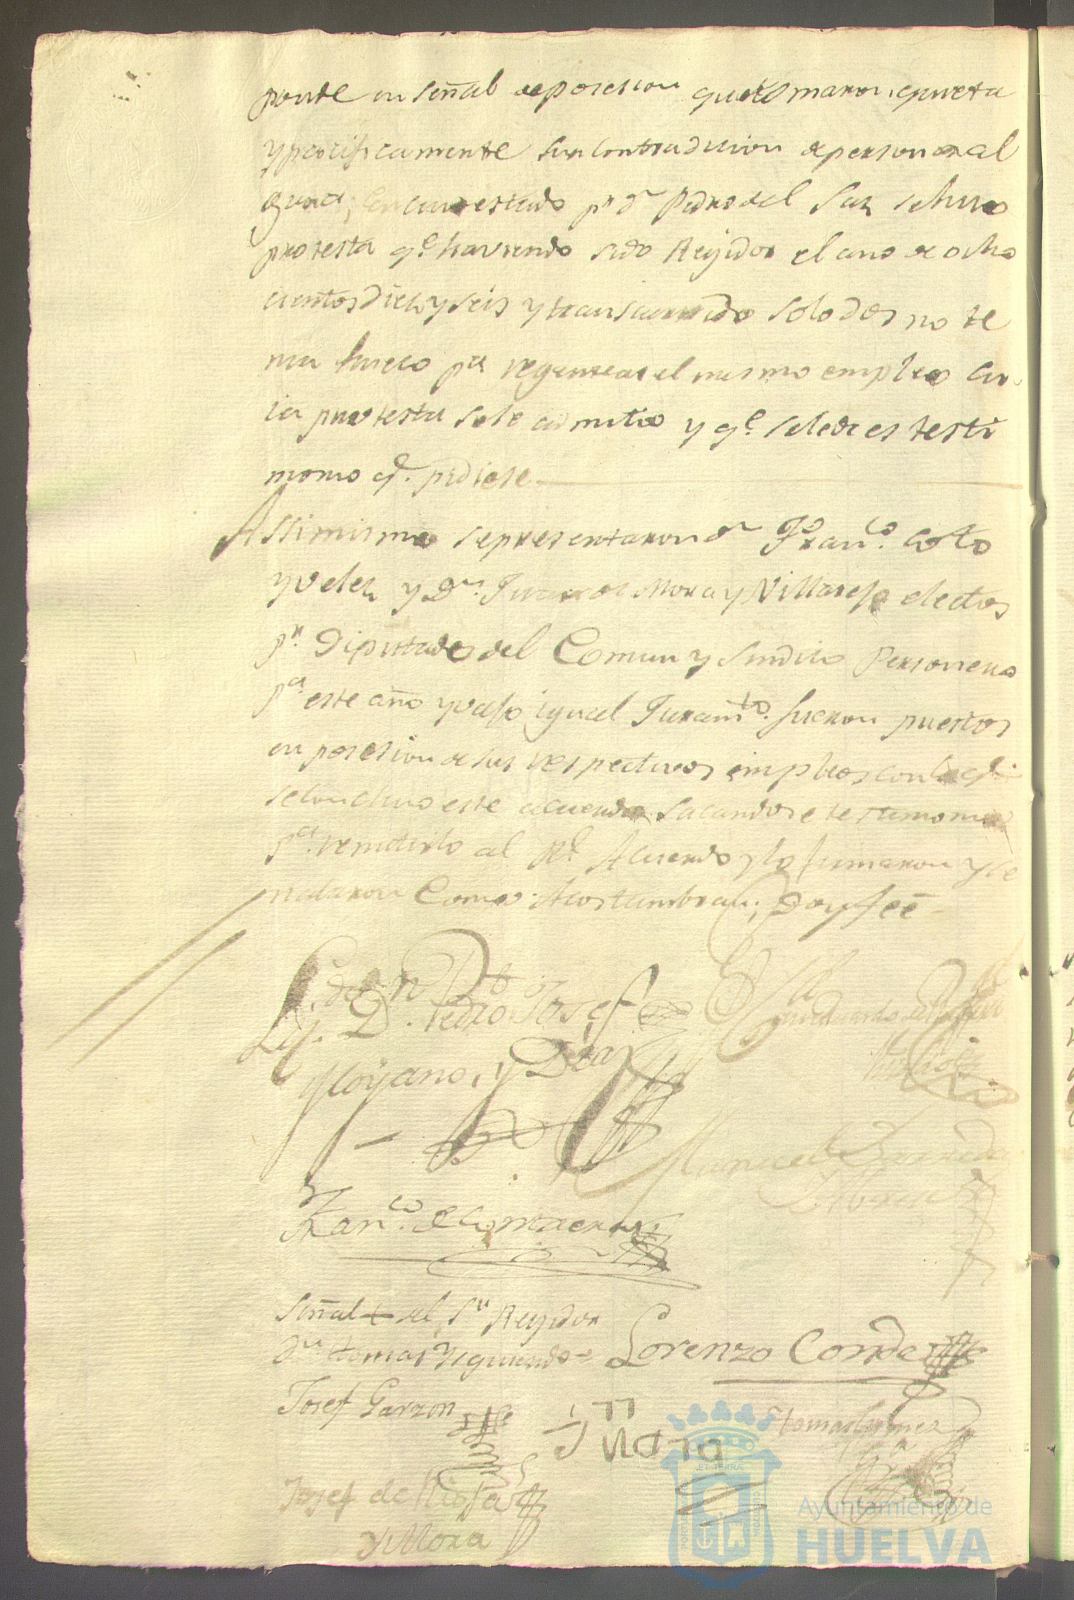 ponde en señal de posesion que tomaron quieta
y pacificamente sin contradicion de persona al
guna; en cuio estado pr. Dn. Pedro del Saz se hizo
protesta qe. haviendo sido Regidor el ano de ocho
cientos diez y seis y transcurrido solo dos no te
nia hueco pa. regentear el mismo empleo cu
ia protesta se le admitio y qe. se le de el testi
monio qe. pidiese
Assimismo se presentaron Dn. Franco. Coto
y Velez y Dn. Juan de Mora y Villarejo electos
pr. Diputados del Comun y Sindico Personero
pa. este año y vajo igual Juramto. fueron puestos
en posesion de sus respectivos empleos con lo qe.
se concluio este acuerdo sacandose testimonio
pa. remitirlo al Rl. Acuerdo y lo firmaron y se
ñalaron como Acostumbran; Doy feé
Lic. Dn. Pedro Josef
Moyano, y Diaz
Manuel
Franco. de Contreras
Señal + del Sr. Regidor
Dn. tomas Yzquierdo =
Lorenzo Conde
Josef Garzon
tomas Gomez
Josef de
y Mora
Ayuntamiento de
HUELVA